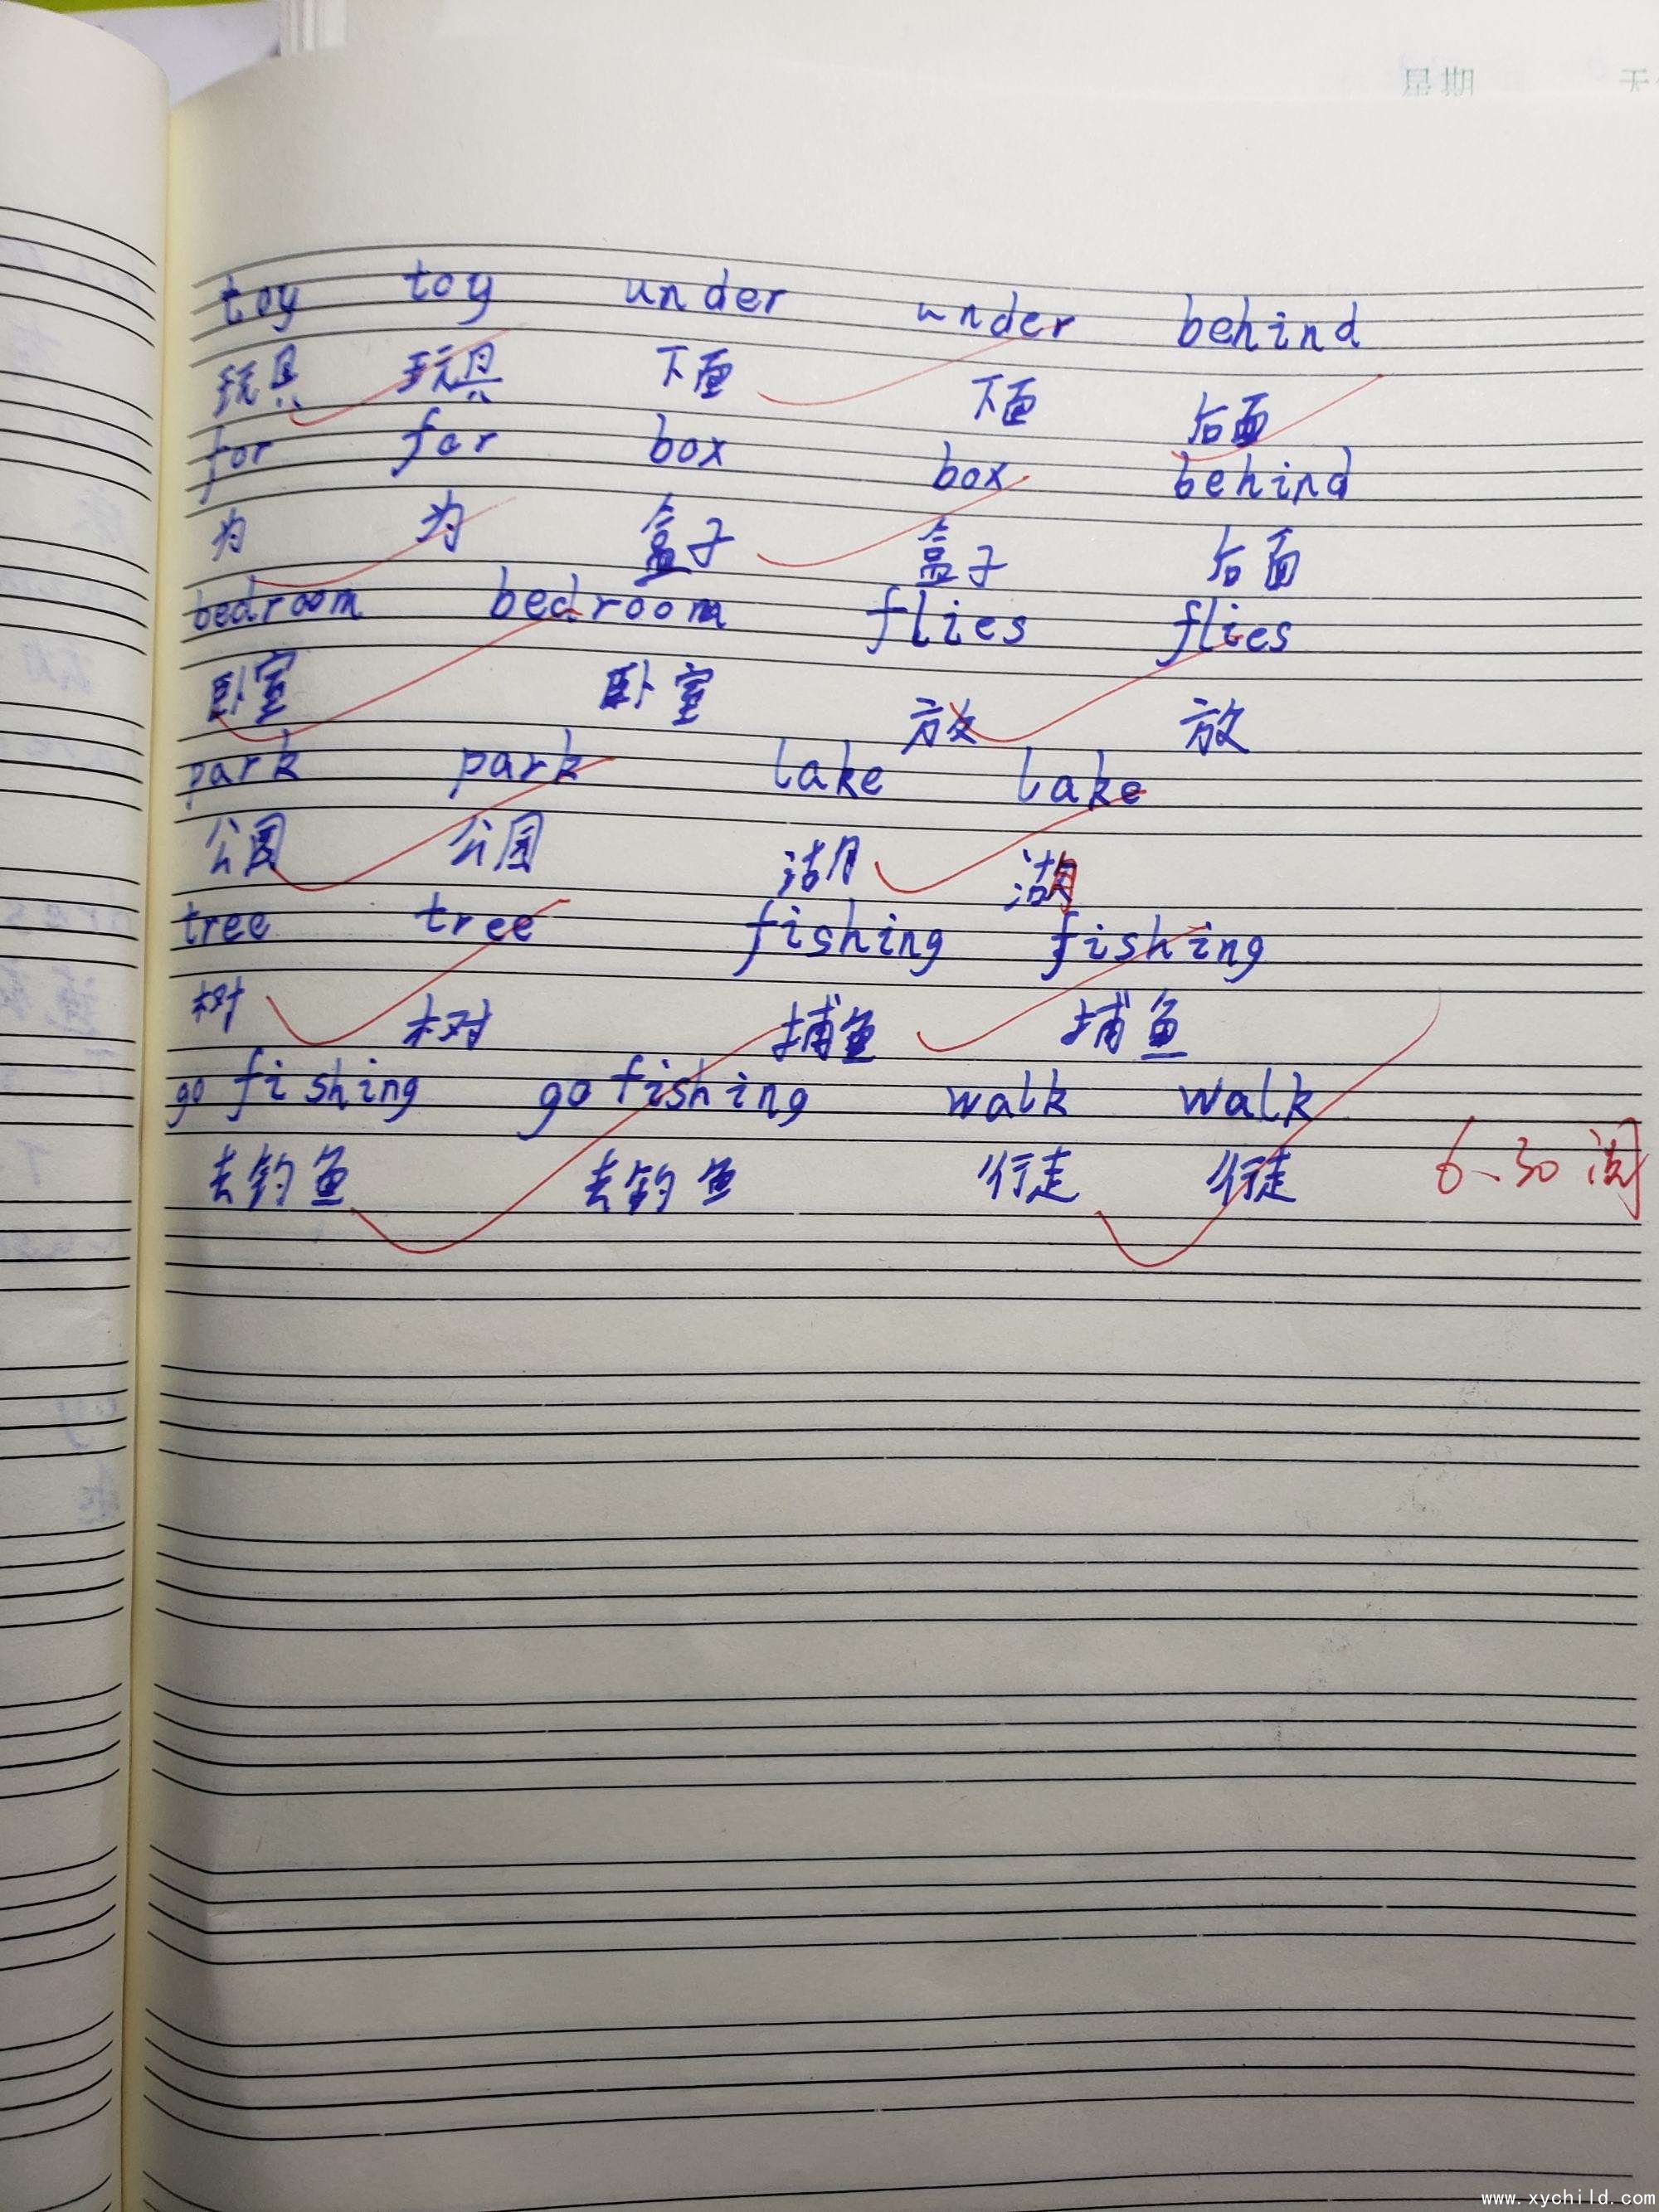 星期
toy toy under under behind
玩具 玩具 下面 下面 后面
for for box box behind
为 为 盒子 盒子 后面
bedroom bedroom flies flies
卧室 卧室 放 放
park park lake lake
公园 公园 湖 湖
tree tree fishing fishing
树 树 捕鱼 捕鱼
go fishing go fishing walk walk
去钓鱼 去钓鱼 行走 行走
6-30 阅
www.xychild.com